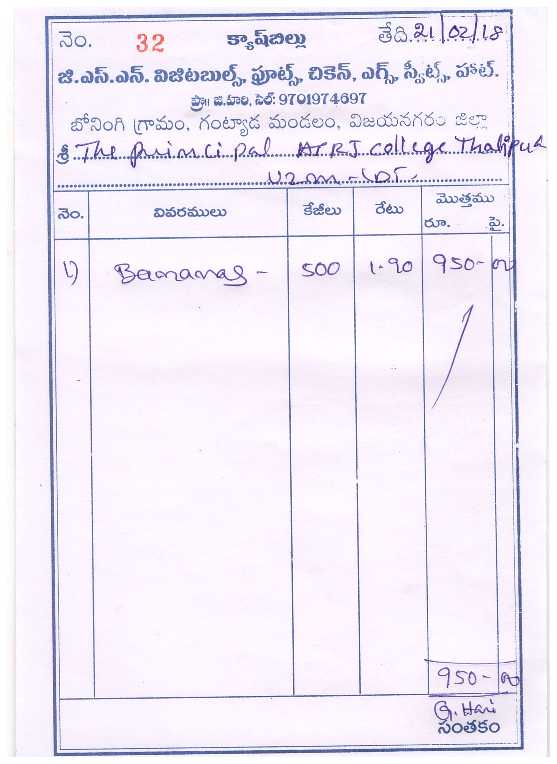 నెం. 32 క్యాష్‌బిల్లు తేది. 21/02/18
జి.ఎస్.ఎన్. విజిటబుల్స్, ఫ్రూట్స్, చికెన్, ఎగ్స్, స్వీట్స్, హాట్.
ప్రొ॥ జి.హరి, సెల్: 9701974697
బోనింగి గ్రామం, గంట్యాడ మండలం, విజయనగరం జిల్లా
శ్రీ The principal APRJ college Thatipudi
VZM-IDT.
నెం. వివరములు కేజీలు రేటు మొత్తము
రూ. పై.
1) Bananas - 500 1.90 950-00
950-00
G. Hari
సంతకం